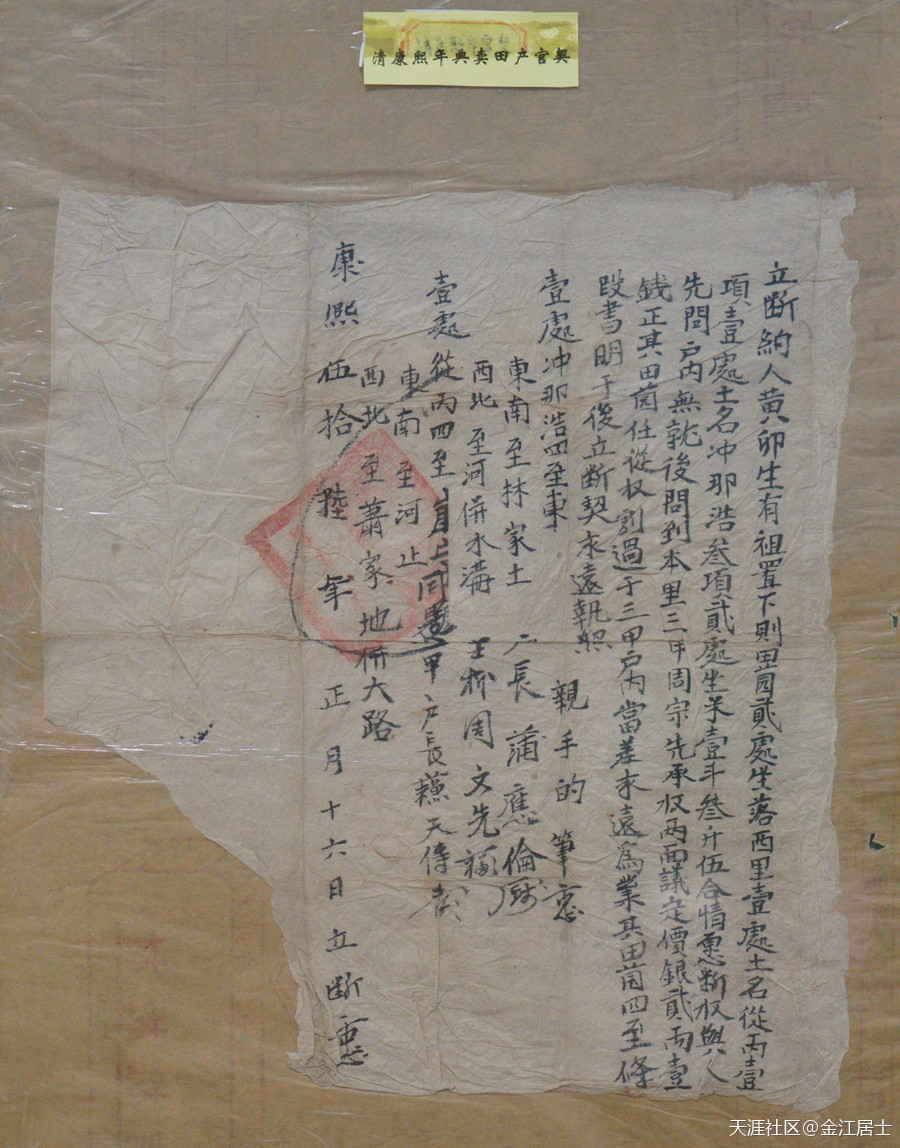 清康熙年典卖田产官契
立断約人黄卯生有祖置下則田囩貳處坐落西里壹處土名從丙壹
項壹處土名冲那浩叁項貳處坐米壹斗叁升伍合情愿断权與人
先問户内無就後問到本里三甲周宗先承权两面議定價銀貳两壹
錢正其田茵任從权割過于三甲户内當差永遠爲業其田茵四至條
段書明于後立断契永遠執照
親手的筆
壹處冲那浩四至東
東南至林家土
户長蒲應倫
西北至河併水溝
周文先
壹處從丙四至
甲户長 天傳
東南至河止
西北至蕭家地併大路
康熙伍拾陸年正月十六日立断
天涯社区@金江居士